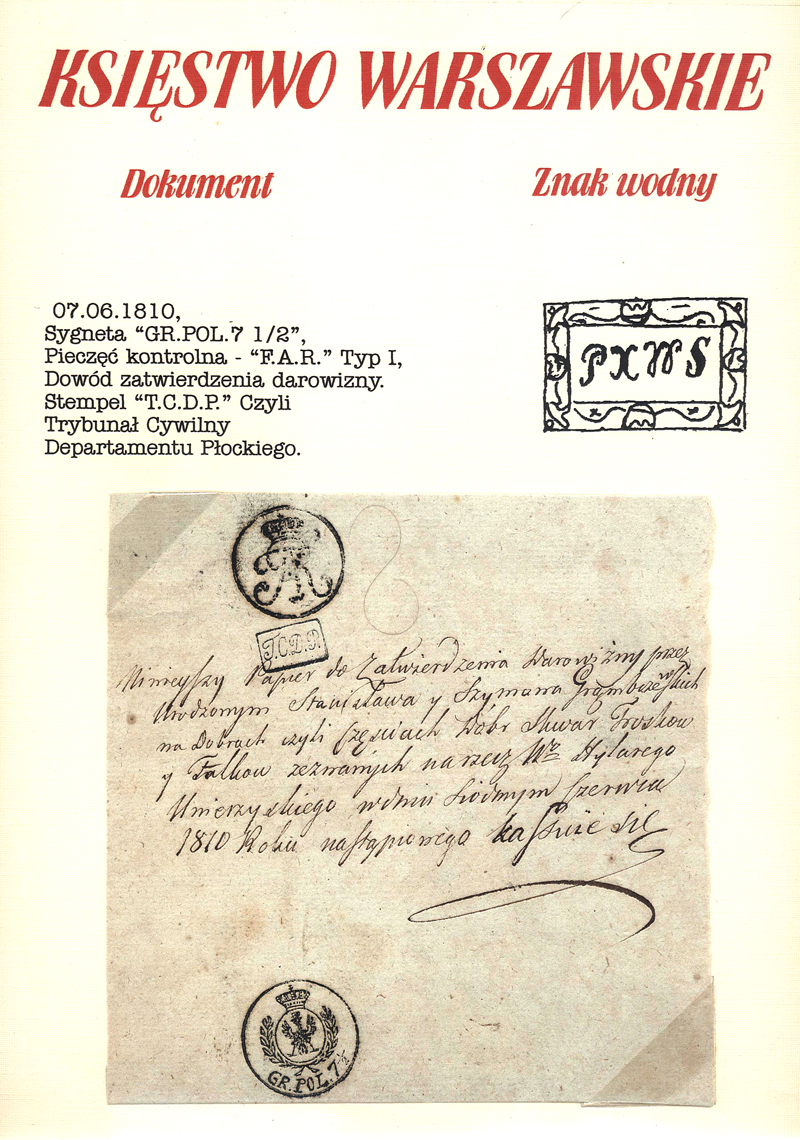 KSIĘSTWO WARSZAWSKIE
Dokument
Znak wodny
07.06.1810,
Sygneta “GR.POL.7 1/2”,
Pieczęć kontrolna - “F.A.R.” Typ I,
Dowód zatwierdzenia darowizny.
Stempel “T.C.D.P.” Czyli
Trybunał Cywilny
Departamentu Płockiego.
PXWS
T.C.D.P.
Ninieyszy Papier do Zatwierdzenia Darowizny przez
Urodzonym Stanisława y Szymana
na Dobrach czyli Częściach Dóbr
y zezwanych na rzecz Wo Hylarego
Umierzyskiego w dniu siódmym Czerwca
1810 Roku nastąpionego kassuie się
GR.POL.7½